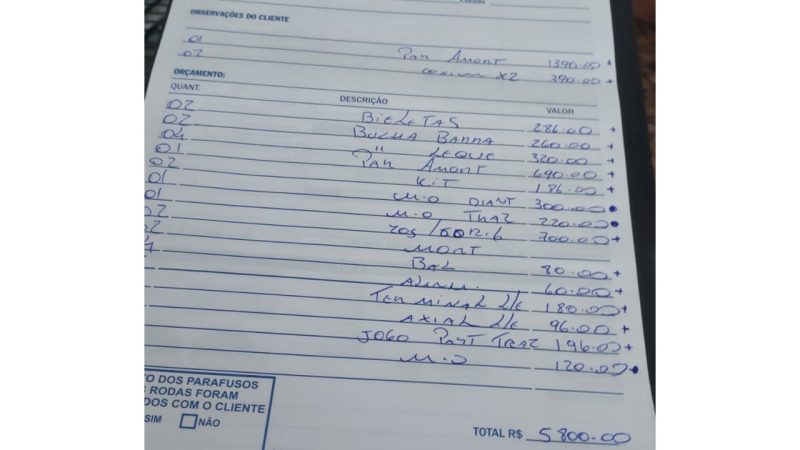 OBSERVAÇÕES DO CLIENTE
01 Par Amort 1390.00 +
02 coxim x2 390.00 +
ORÇAMENTO:
QUANT. DESCRIÇÃO VALOR
02 BiELETAS 286.00 +
02 BUCHA BARRA 260.00 +
04 " LEQUE 320.00 +
01 Par Amort 690.00 +
02 KiT 186.00 +
01 M.O DIANT 300.00 •
01 M.O TRAZ 220.00 •
02 205/60R16 700.00 +
02 MONT
4 BAL 80.00 +
ALINH. 60.00 +
TERMINAL L/E 180.00 +
AXIAL L/E 96.00 +
JOGO PAST TRAZ 196.00 +
M.O 120.00 •
TO DOS PARAFUSOS
RODAS FORAM
DOS COM O CLIENTE
SIM NÃO
TOTAL R$ 5800.00